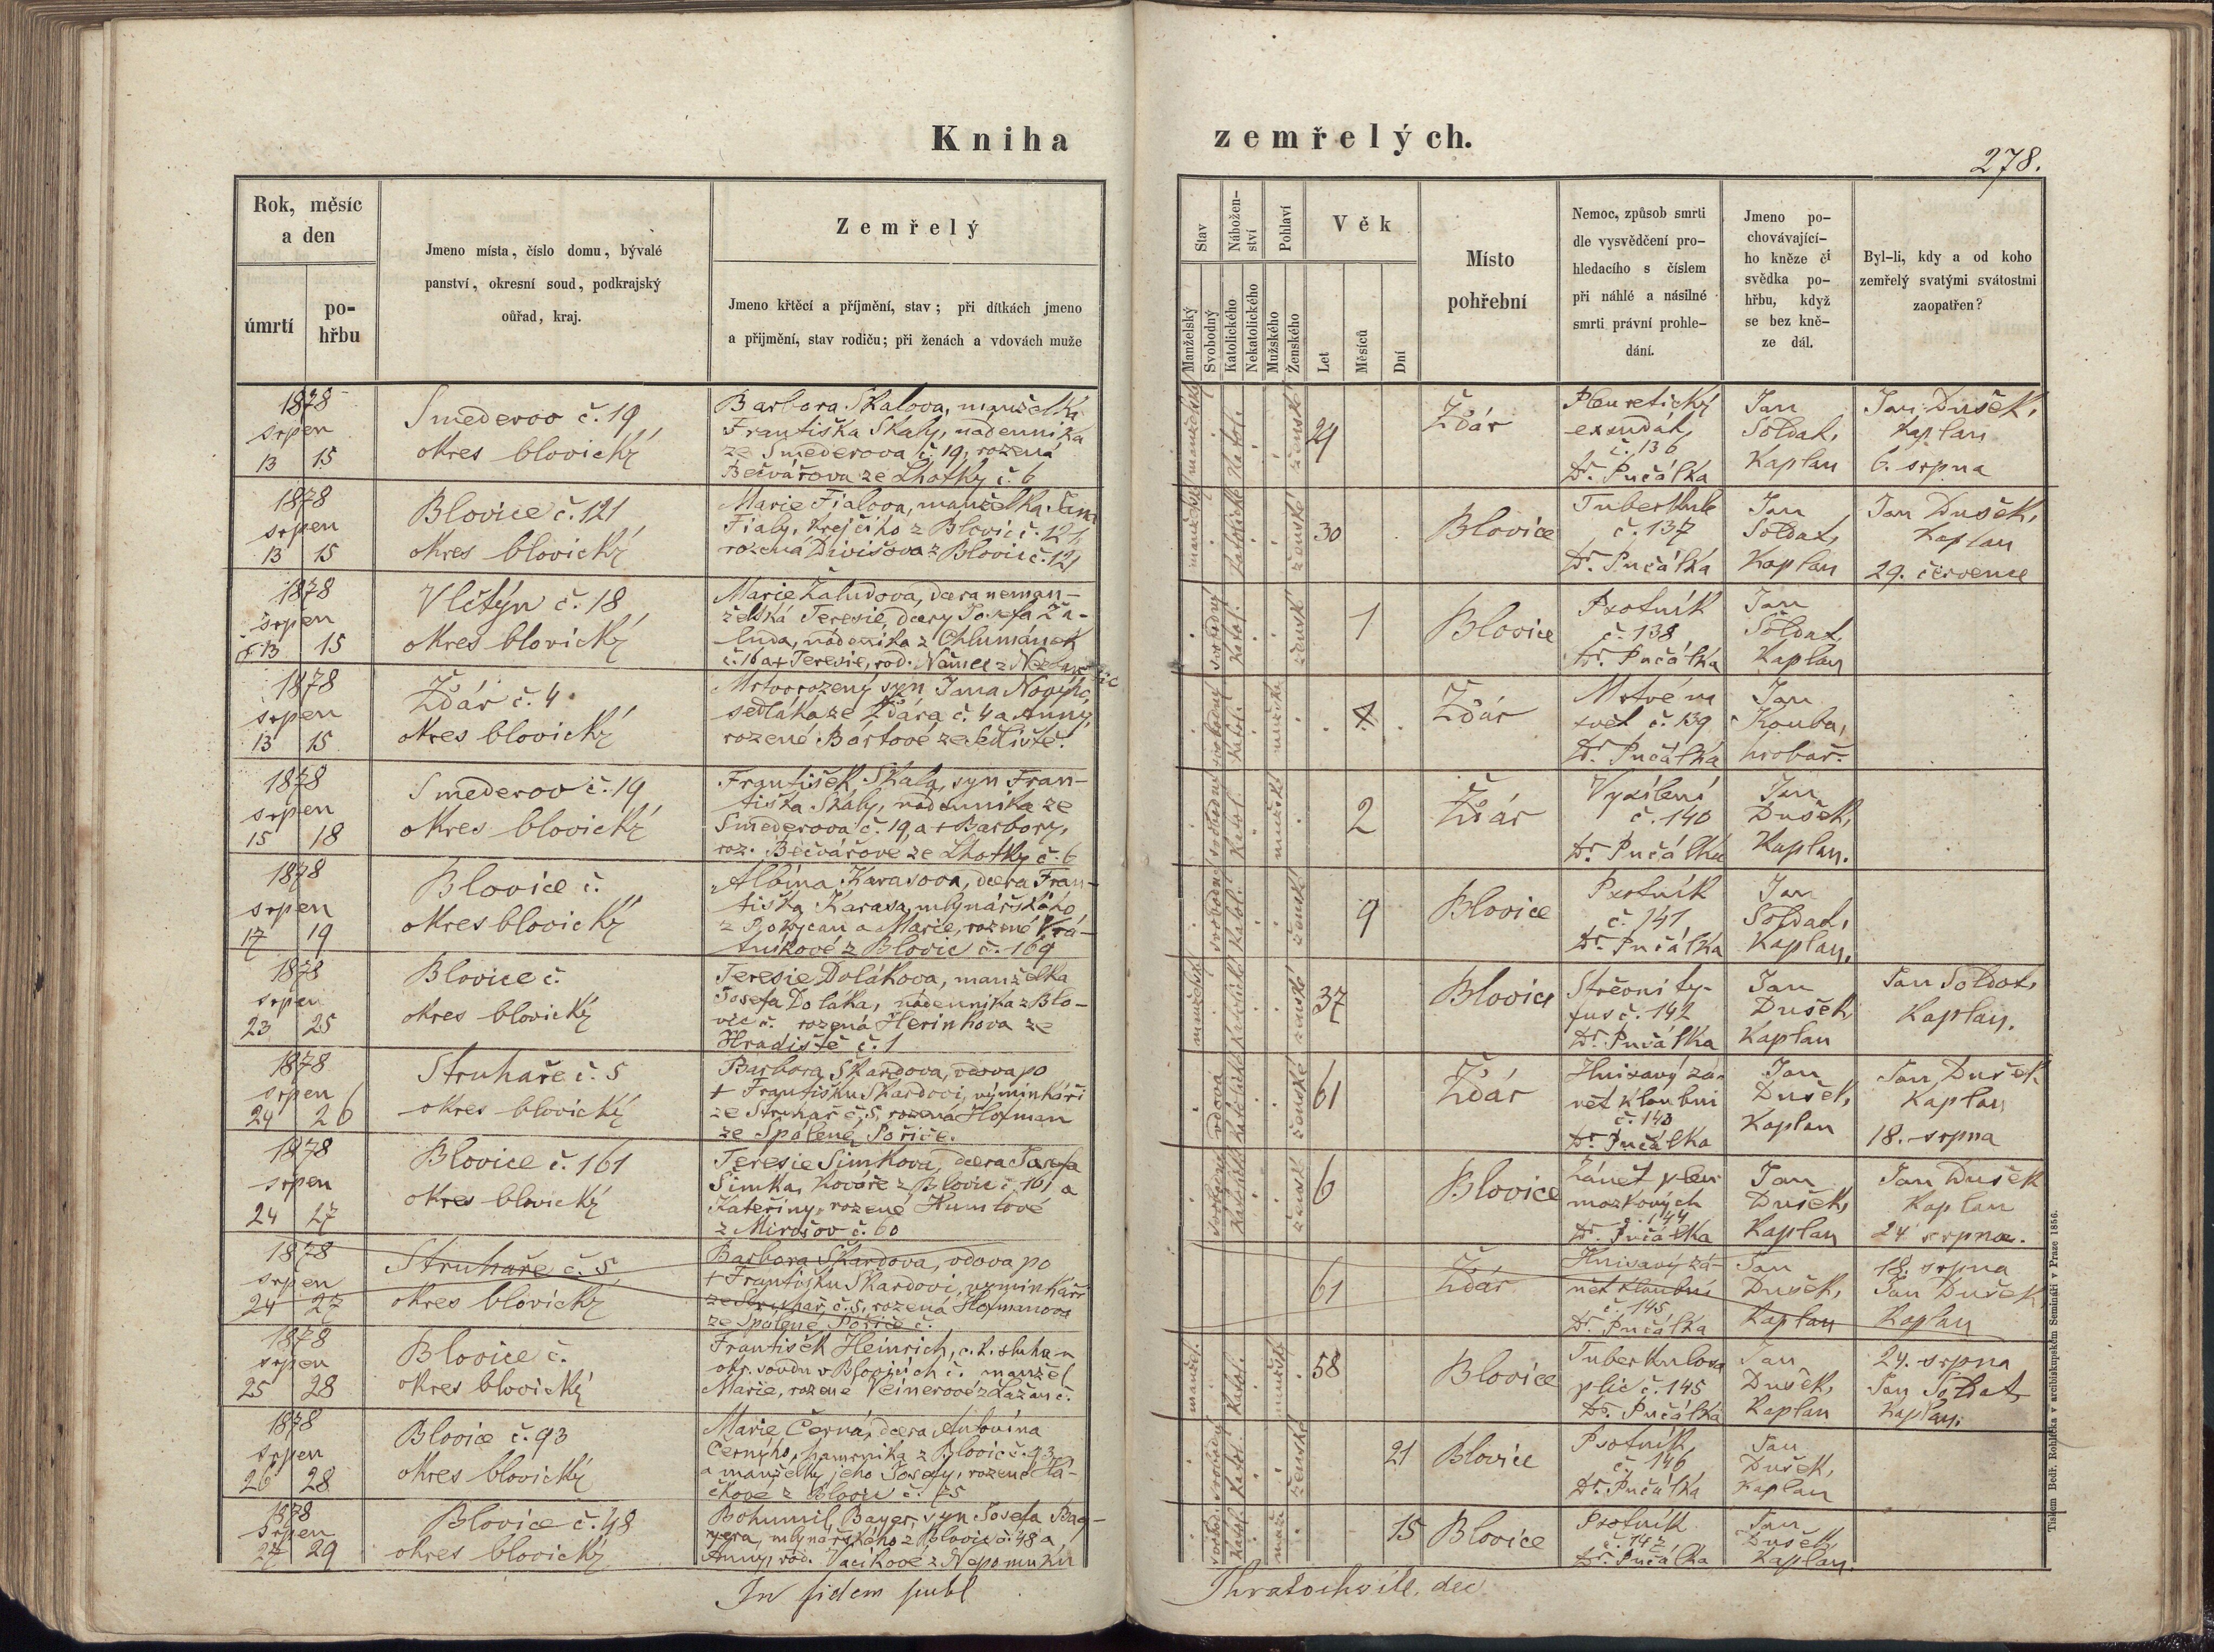 Kniha
zemřelých.
278.
Rok, měsíc
a den
úmrtí
po-
hřbu
Jmeno místa, číslo domu, bývalé
panství, okresní soud, podkrajský
ouřad, kraj.
Zemřelý
Jmeno křtěcí a příjmění, stav; při dítkách jmeno
a přijmění, stav rodičů; při ženách a vdovách muže
Stav
Nábožen-
ství
Pohlaví
Věk
Manželský
Svobodný
Katolického
Nekatolického
Mužského
Ženského
Let
Měsíců
Dní
Místo
pohřební
Nemoc, způsob smrti
dle vysvědčení pro-
hledacího s číslem
při náhlé a násilné
smrti právní prohle-
dání.
Jmeno po-
chovávající-
ho kněze či
svědka po-
hřbu, když
se bez kně-
ze dál.
Byl-li, kdy a od koho
zemřelý svatými svátostmi
zaopatřen?
1878
srpen
13 15
Smederov č. 19
okres blovický
Barbora Skalova, manželka
Františka Skaly, nadenníka
ze Smederova č. 19, rozená
Bečvářova ze Lhotky č. 6
manželské
Katol.
ženské
29
Žďár
Pleuretický
exsudát
č. 136
Dr. Pučálka
Jan
Soldat,
Kaplan
Jan Dušek,
Kaplan
6. srpna
1878
srpen
13 15
Blovice č. 121
okres blovický
Marie Fialova, manželka Jana
Fialy, krejčího z Blovic č. 121,
rozená Divišova z Blovic č. 121
manželské
Katolické
ženské
30
Blovice
Tuberkule
č. 137
Dr. Pučálka
Jan
Soldat,
Kaplan
Jan Dušek,
Kaplan
29. července
1878
srpen
13 15
Vlčtýn č. 18
okres blovický
Marie Žaludova, dcera neman-
želská Teresie, dcery Josefa Ža-
luda, nádeníka z Chlumánek
č. 16 a + Teresie, rod.
svobodný
Katol.
ženské
1
Blovice
Psotník
č. 138
Dr. Pučálka
Jan
Soldat,
Kaplan
1878
srpen
13 15
Žďár č. 4
okres blovický
Mrtvorozený syn Jana Nového
sedláka ze Žďára č. 4 a Anny,
rozené Bártové ze Sedliště.
svobodný
Katol.
mužské
Žďár
Mrtvé na
svět č. 139
Dr. Pučálka
Jan
Kouba,
hrobař.
1878
srpen
15 18
Smederov č. 19
okres blovický
František Skala, syn Fran-
tiška Skaly, nádenníka ze
Smederova č. 19, a + Barbory,
roz. Bečvářové ze Lhotky č. 6
svobodné
Katol.
mužské
2
Žďár
Vysílení
č. 140
Dr. Pučálka
Jan
Dušek,
Kaplan.
1878
srpen
17 19
Blovice č.
okres blovický
Albína Karasova, dcera Fran-
tiška Karasa, mlynářského
z Rokycan a Marie, rozené Vrá-
tníkové z Blovic č. 169
svobodné
Katol.
ženské
9
Blovice
Psotník
č. 141
Dr. Pučálka
Jan
Soldat,
Kaplan.
1878
srpen
23 25
Blovice č.
okres blovický
Teresie Dolákova, manželka
Josefa Doláka, nádenníka z Blo-
vic č. rozená Herinkova ze
Hradiště č. 1
manželské
Katolické
ženské
37
Blovice
Střevní ty-
fus č. 142
Dr. Pučálka
Jan
Dušek,
Kaplan
Jan Soldat,
Kaplan.
1878
srpen
24 26
Struhaře č. 5
okres blovický
Barbora Škardova, vdova po
+ Františku Škardovi, výminkáři
ze Struhař č. 5, rozená Hofman
ze Spálené Poříče.
vdova
Katolické
ženské
61
Žďár
Hnisavý zá-
nět kloubní
č. 143
Dr. Pučálka
Jan
Dušek,
Kaplan
Jan Dušek
Kaplan
18. srpna
1878
srpen
24 27
Blovice č. 161
okres blovický
Teresie Šimkova, dcera Josefa
Šimka, Kováře z Blovic č. 161 a
Kateřiny, rozené Humlové
z Mirošov č. 60
svobodné
Katolické
ženské
6
Blovice
Zánět plen
mozkových
č. 144
Dr. Pučálka
Jan
Dušek,
Kaplan
Jan Dušek
Kaplan
24 srpna.
1878
srpen
24 27
Struhaře č. 5
okres blovický
Barbora Škardova, vdova po
+ Františku Škardovi, výminkáři
ze Struhař, č. 5, rozená Hofmanova
ze Spálené Poříče č.
61
Žďár
Hnisavý zá-
nět kloubní
č. 145
Dr. Pučálka
Jan
Dušek,
Kaplan
18. srpna
Jan Dušek,
Kaplan
1878
srpen
25 28
Blovice č.
okres blovický
František Heinrich, c. k. sluha u
okr. soudu v Blovicích č. manžel
Marie, rozené Veinerové z Lažan č.
manžel.
Katol.
mužsk.
58
Blovice
Tuberkulosa
plic č. 145
Dr. Pučálka
Jan
Dušek,
Kaplan
24. srpna
Jan Soldat
Kaplan.
1878
srpen
26 28
Blovice č. 93
okres blovický
Marie Černá, dcera Antonína
Černýho, hamrníka z Blovic č. 93
a manželky jeho Josefy, rozené
čkové z Blovic č. 75
svobodný
Katol.
ženské
21
Blovice
Psotník
č. 146
Dr. Pučálka
Jan
Dušek,
Kaplan
1878
Srpen
27 29
Blovice č. 48
okres blovický
Bohumil Bayer, syn Josefa Bay-
yera, mlynářského z Blovic č. 48 a
Anny, rod. Vacíkové z Nepomuku
svobod.
Katol.
muž.
15
Blovice
Psotník
č. 147
Dr. Pučálka
Jan
Dušek,
Kaplan.
In fidem publ
Kratochwile, dec.
Tiskem Bedř. Rohlíčka v arcibiskupském Semináři v Praze 1856.